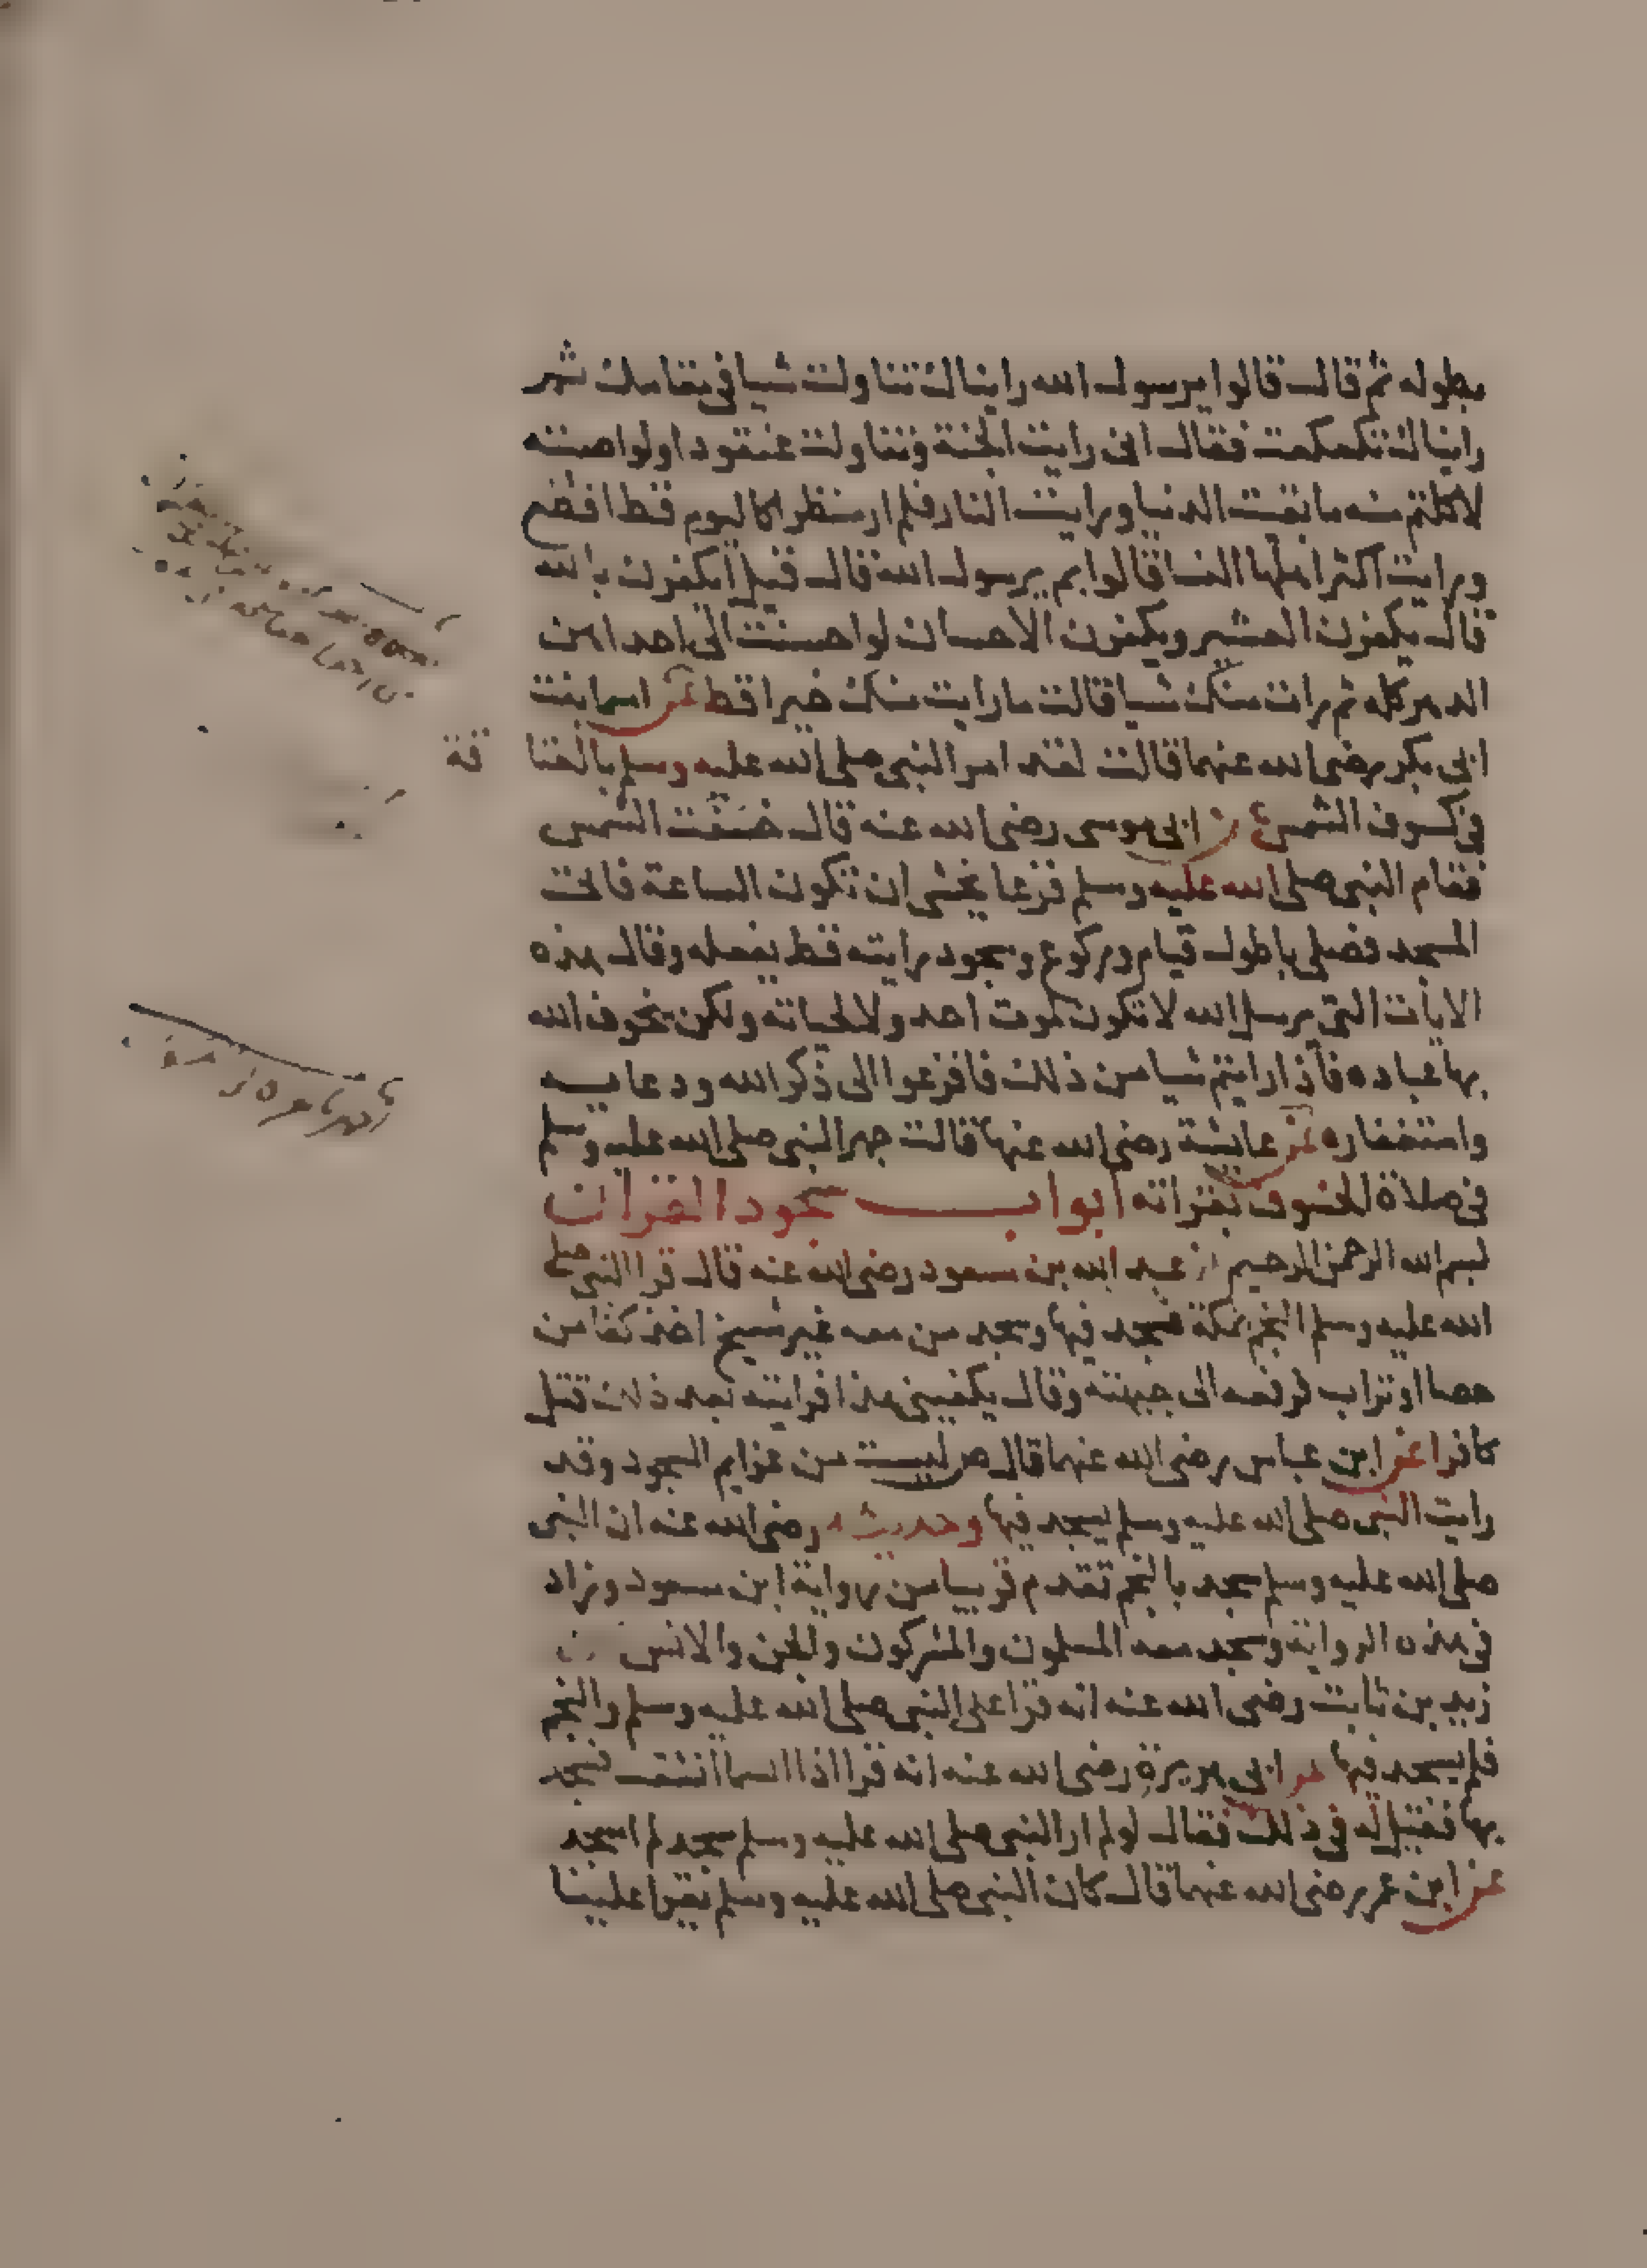 بطوله ثم قالت قالوا يرسول الله رايناك تناولت شيا في مقامك ثم
رايناك تكعكعت فقال اني رايت الجنة وتناولت عنقودا ولو اصبته
لاكلتم منه ما بقيت الدنيا ورايت النار فلم ار منظرا كاليوم قط افضع
ورايت اكثر اهلها النسا قالوا بم يرسول الله قال قيل ايكفرن بالله
قال يكفرن العشير ويكفرن الاحسان لو احسنت الى احداهن
الدهر كله ثم رات منك شيا قالت ما رايت منك خيرا قط عن اسما بنت
ابي بكر رضي الله عنهما قالت لقد امر النبي صلى الله عليه وسلم بالعتا قة
في كسوف الشمس عن ابي موسى رضي الله عنه قال خسفت الشمس
فقام النبي صلى الله عليه وسلم فزعا يخشى ان تكون الساعة فاتى
المسجد فصلى باطول قيام وركوع وسجود رايته قط يفعله وقال هذه
الايات التي يرسل الله لا تكون لموت احد ولا لحياته ولكن يخوف الله
بها عباده فاذا رايتم شيا من ذلك فافزعوا الى ذكر الله ودعايه
واستغفاره عن عايشة رضي الله عنها قالت جهر النبي صلى الله عليه وسلم
في صلاة الخسوف بقراته ابواب سجود القران
بسم الله الرحمن الرحيم عن عبد الله بن مسعود رضي الله عنه قال قرا النبي صلى
الله عليه وسلم النجم بمكة فسجد فيها وسجد من معه غير شيخ اخذ كفا من
حصا او تراب فرفعه الى جبهته وقال يكفيني هذا فرايته بعد ذلك قتل
كافرا عن ابن عباس رضي الله عنهما قال ص ليست من عزايم السجود وقد
رايت النبي صلى الله عليه وسلم يسجد فيها وحديثه رضي الله عنه ان النبي
صلى الله عليه وسلم سجد بالنجم تقدم قريبا من رواية ابن مسعود وزاد
في هذه الرواية وسجد معه المسلمون والمشركون والجن والانس عن
زيد بن ثابت رضي الله عنه انه قرا على النبي صلى الله عليه وسلم والنجم
فلم يسجد فيها عن ابي هريرة رضي الله عنه انه قرا اذا السما انشقت فسجد
بها فقيل له في ذلك فقال لو لم ار النبي صلى الله عليه وسلم سجد لم اسجد
عن ابن عمر رضي الله عنهما قال كان النبي صلى الله عليه وسلم يقرا علينا